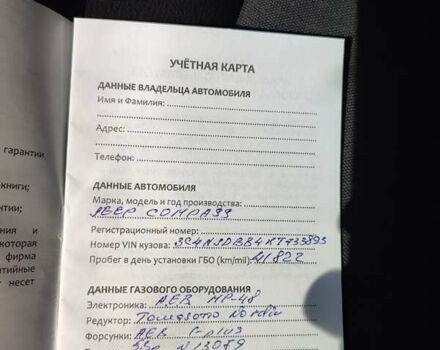 УЧЁТНАЯ КАРТА
ДАННЫЕ ВЛАДЕЛЬЦА АВТОМОБИЛЯ
Имя и Фамилия:
Адрес:
Телефон:
ДАННЫЕ АВТОМОБИЛЯ
Марка, модель и год производства:
JEEP COMPASS
Регистрационный номер:
Номер VIN кузова:
Пробег в день установки ГБО (km/mil): 41822
ДАННЫЕ ГАЗОВОГО ОБОРУДОВАНИЯ
Электроника: AEB MP-48
Редуктор: Tomasetto Nordic
Форсунки: AEB I-plus
гарантии
книги;
нтии;
ния и
которая
фирма
нтийные
несет